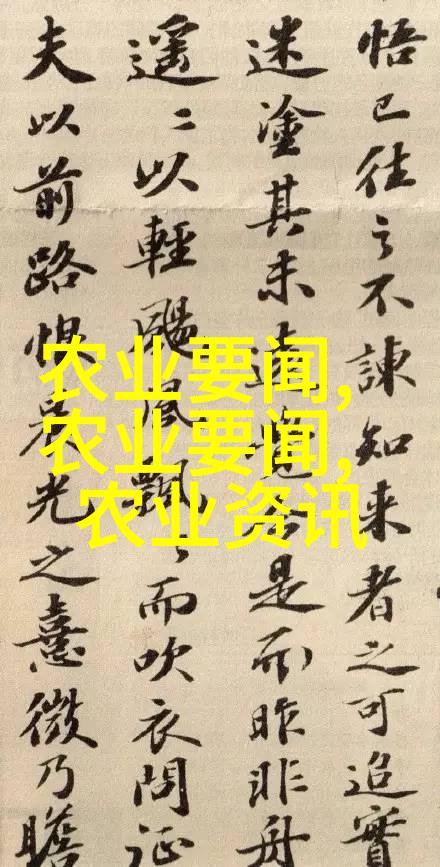 悟已往之不諫知来者之可追實
迷塗其未遠覺今是而昨非舟
遥〻以輕颺風飄〻而吹衣問征
夫以前路恨晨光之熹微乃瞻
农业要闻,
农业要闻,
农业资讯